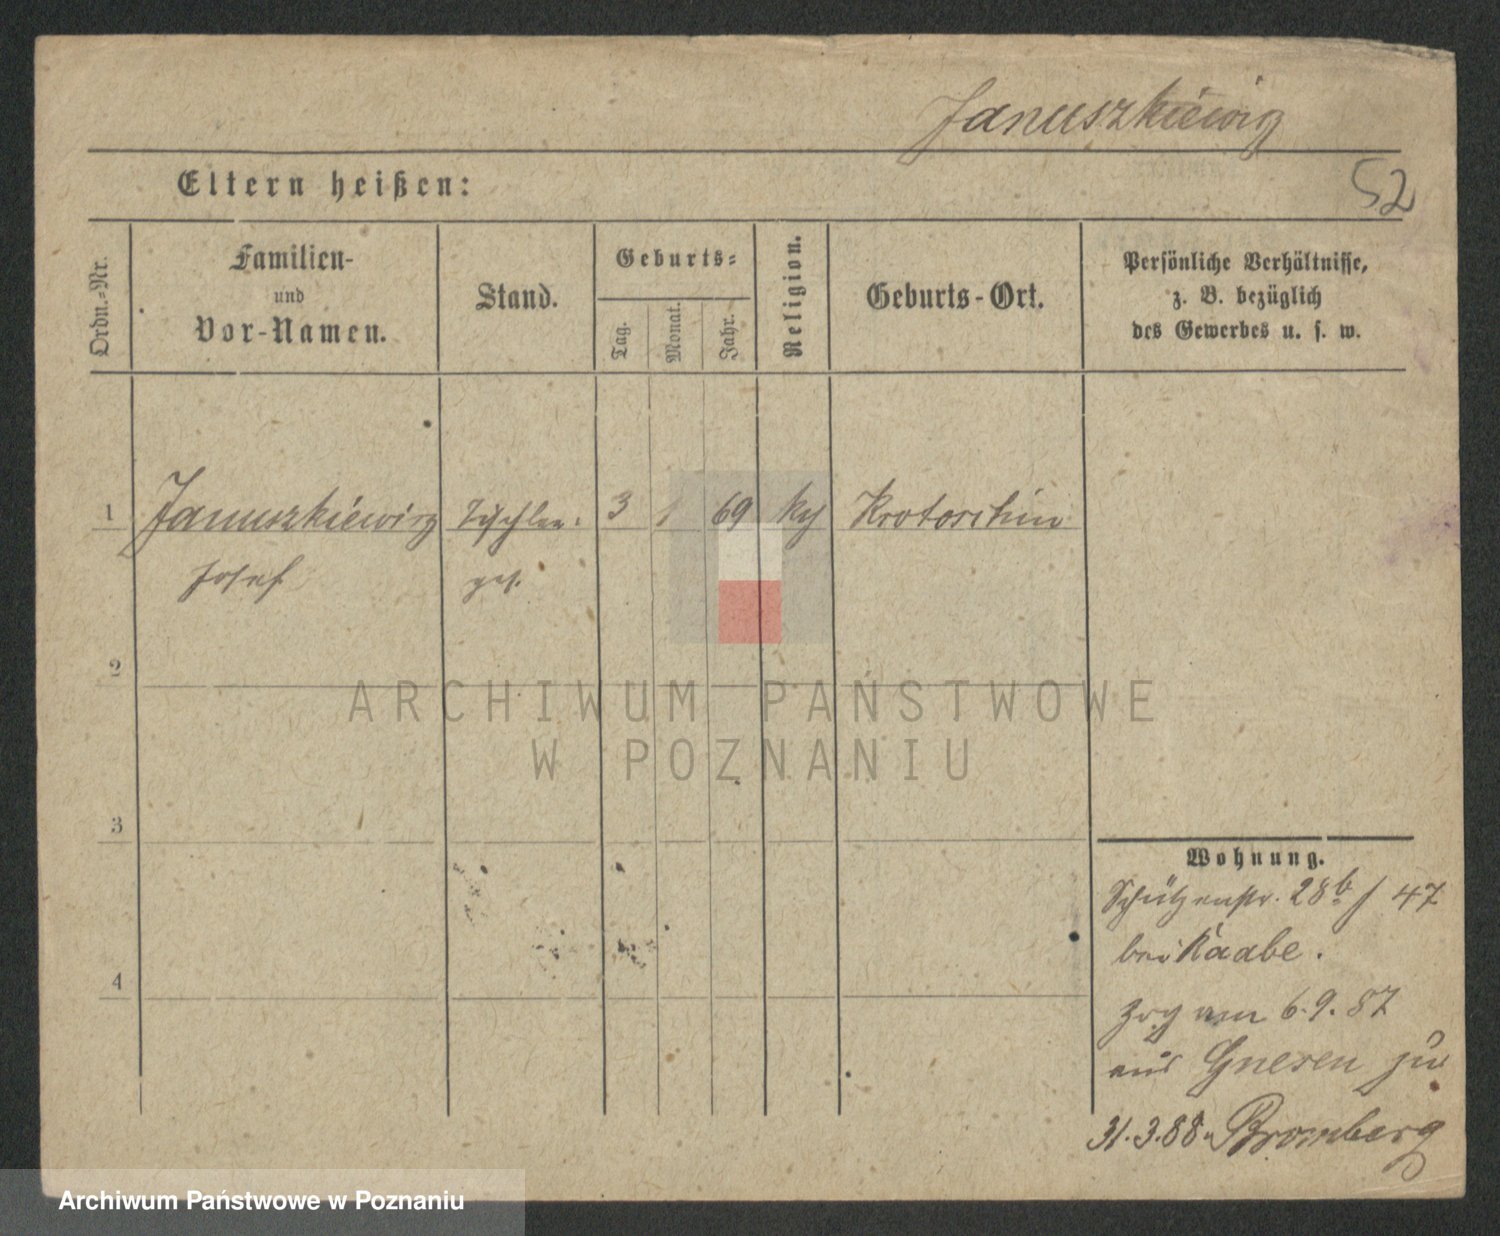 Januszkiewicz
52
Eltern heißen:
Ordn.-Nr.
Familien-
und
Vor-Namen.
Stand.
Geburts-
Tag.
Monat.
Jahr.
Religion.
Geburts-Ort.
Persönliche Verhältnisse,
z. B. bezüglich
des Gewerbes u. s. w.
1 Januszkiewicz Tischler- 3 1 69 kth Krotoschin
Josef ges.
2
ARCHIWUM PAŃSTWOWE
W POZNANIU
3
Wohnung.
Schützenstr. 28b / 47
bei Raabe.
4
zog am 6.9.87
aus Gnesen zu
31.3.88. Bromberg
Archiwum Państwowe w Poznaniu